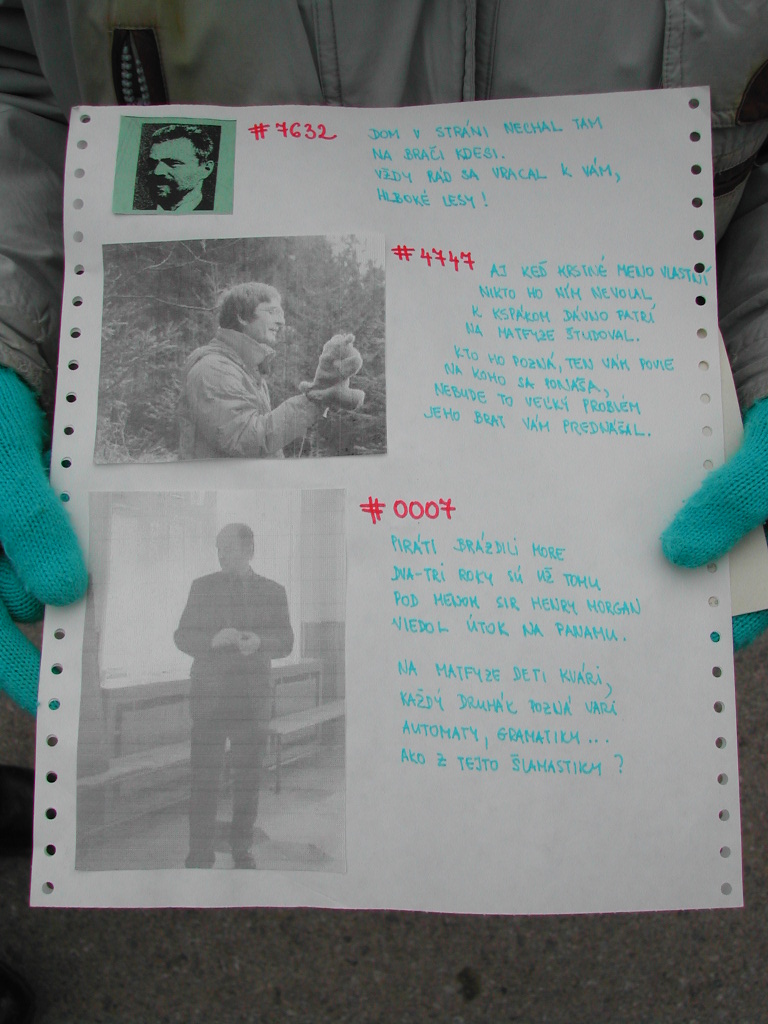 # 7632
DOM V STRÁNI NECHAL TAM
NA BRAČI KDESI.
VŽDY RÁD SA VRACAL K VÁM,
HLBOKÉ LESY!
# 4747
AJ KEĎ KRSTNÉ MENO VLASTNÍ
NIKTO HO NÍM NEVOLAL
K KSPÁKOM DÁVNO PATRÍ
NA MATFYZE ŠTUDOVAL.
KTO HO POZNÁ, TEN VÁM POVIE
NA KOHO SA PONÁŠA,
NEBUDE TO VEĽKÝ PROBLÉM
JEHO BRAT VÁM PREDNÁŠAL.
# 0007
PIRÁTI BRÁZDILI MORE
DVA-TRI ROKY SÚ UŽ TOMU
POD MENOM SIR HENRY MORGAN
VIEDOL ÚTOK NA PANAMU.
NA MATFYZE DETI KVÁRI,
KAŽDÝ DRUHÁK POZNÁ VARI
AUTOMATY, GRAMATIKY...
AKO Z TEJTO ŠLAMASTIKY?